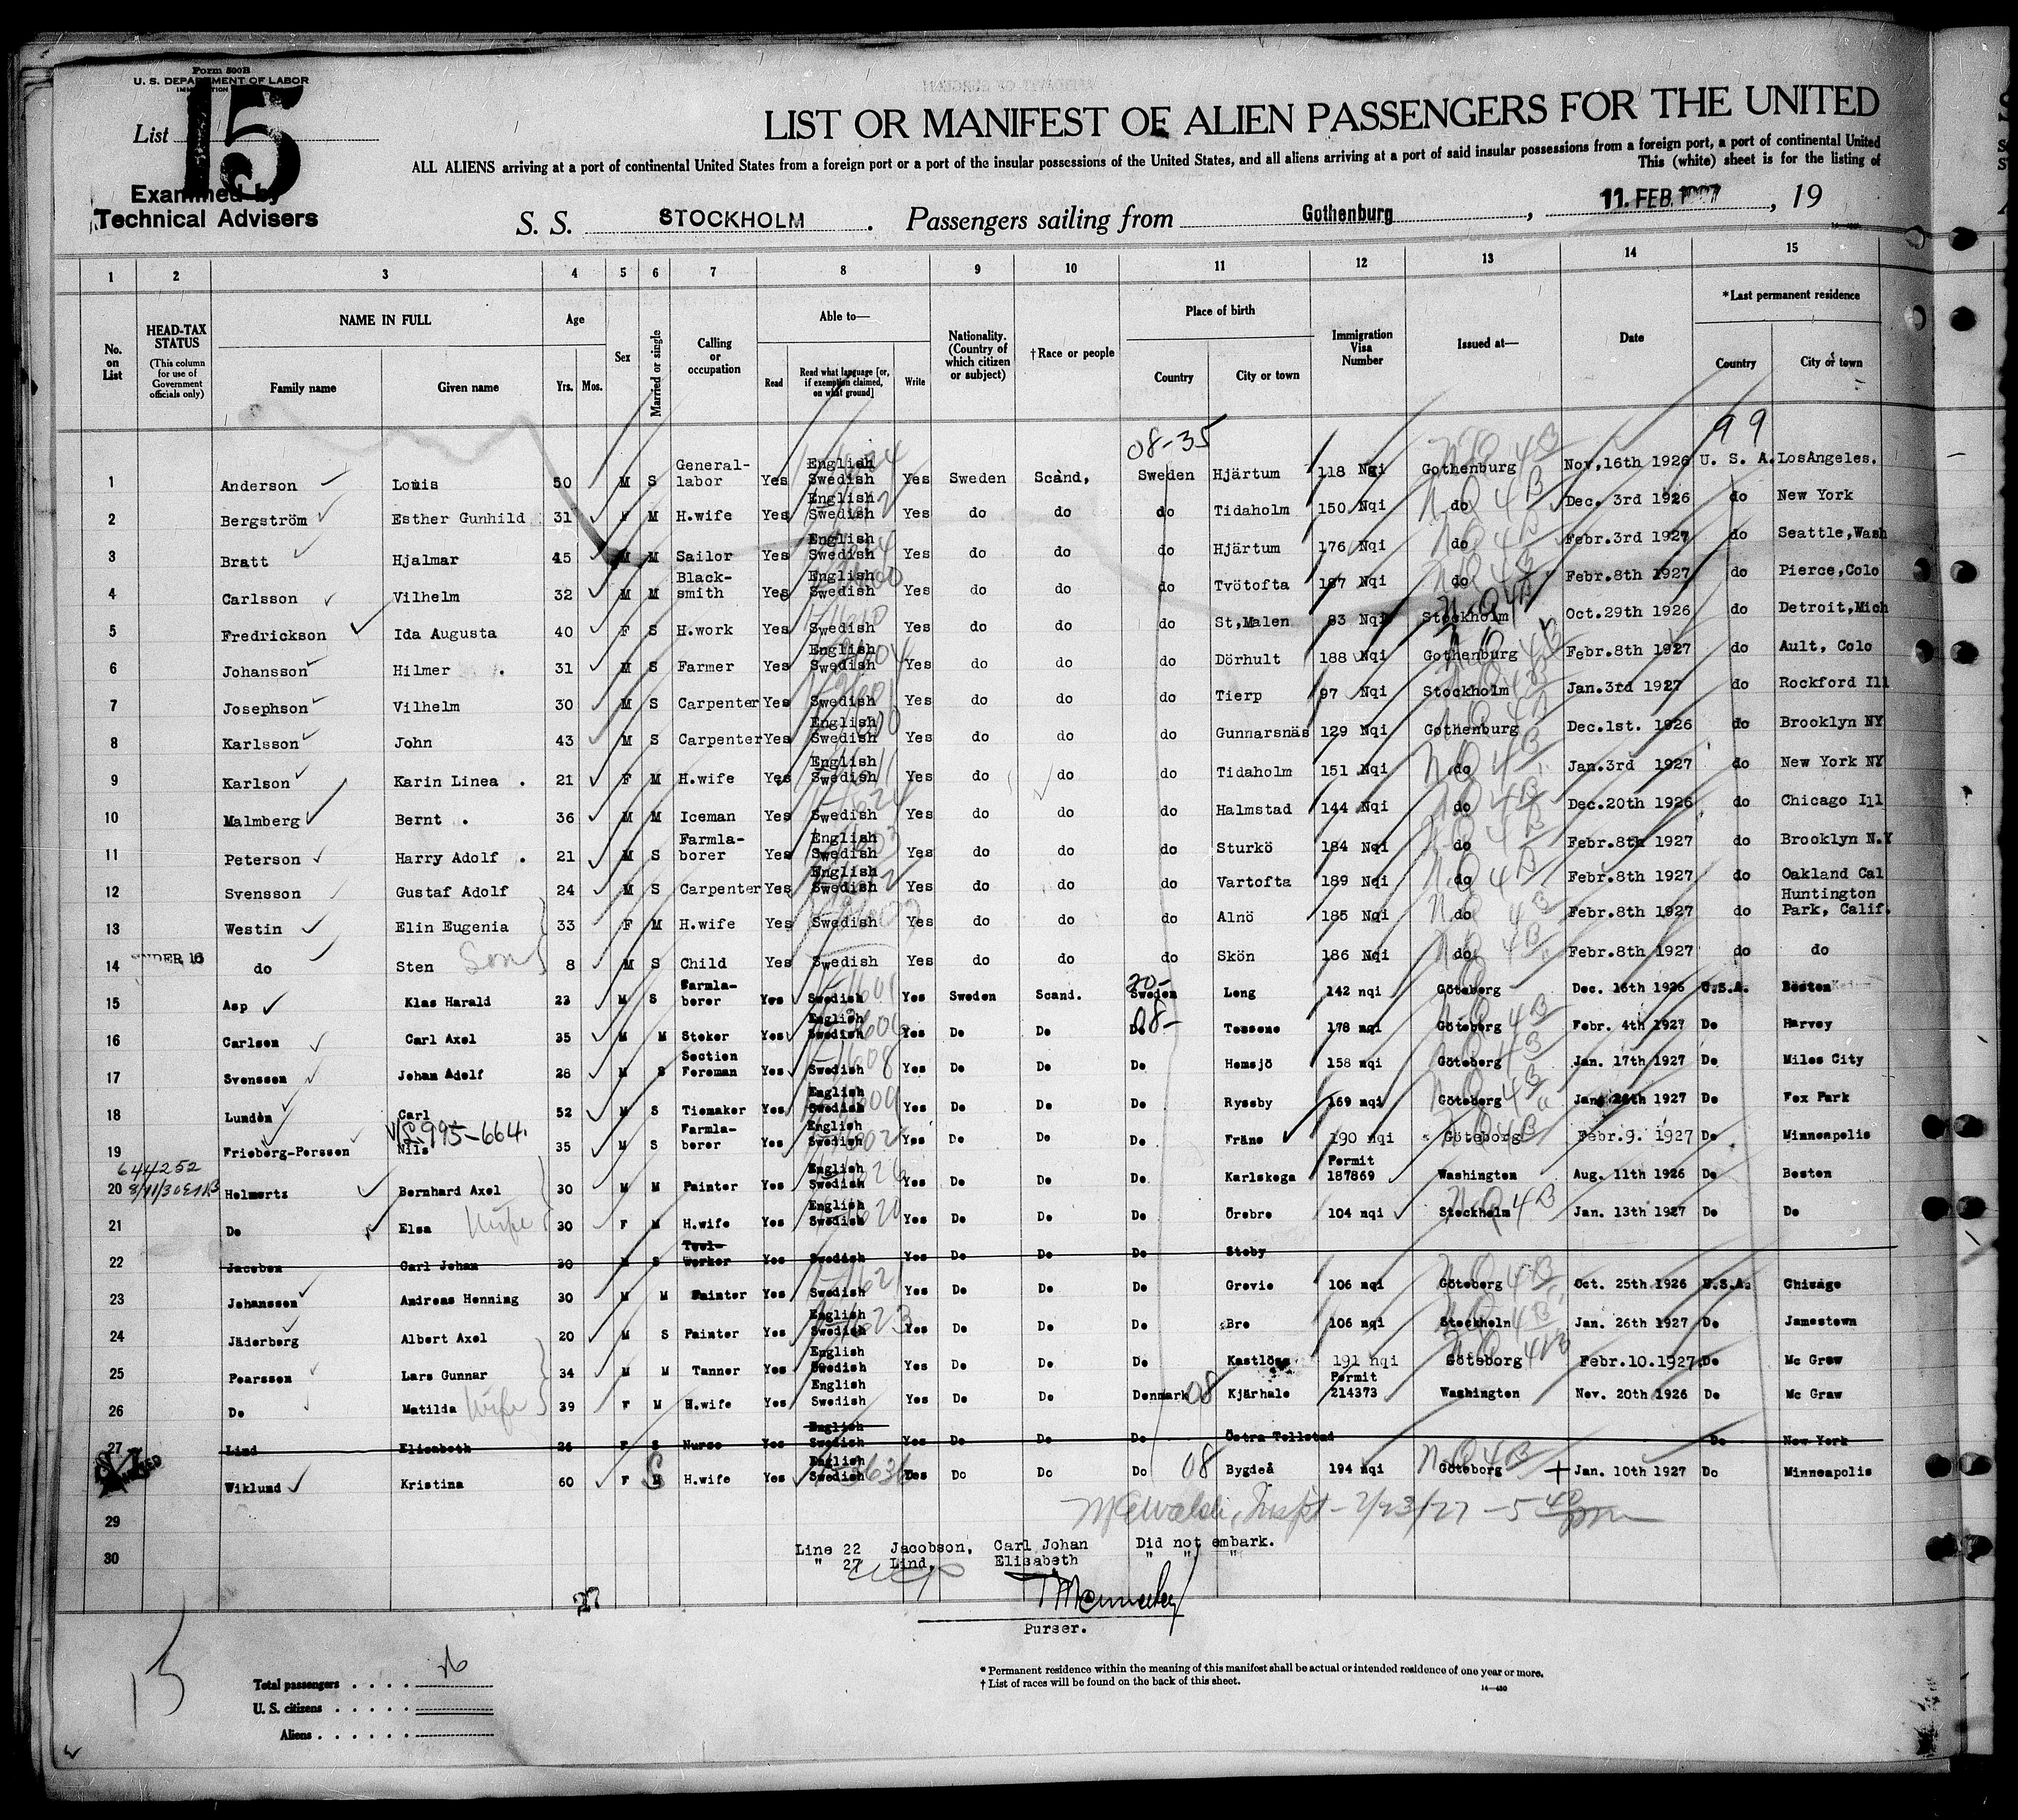 Form 500B
U. S. DEPARTMENT OF LABOR
List 15
Examined by
Technical Advisers
LIST OR MANIFEST OF ALIEN PASSENGERS FOR THE UNITED
ALL ALIENS arriving at a port of continental United States from a foreign port or a port of the insular possessions of the United States, and all aliens arriving at a port of said insular possessions from a foreign port, a port of continental United
This (white) sheet is for the listing of
S. S. STOCKHOLM . Passengers sailing from Gothenburg , 11. FEB. 1927 , 19
1 2 3 4 5 6 7 8 9 10 11 12 13 14 15
No. on List
HEAD-TAX STATUS (This column for use of Government officials only)
NAME IN FULL Family name Given name
Age Yrs. Mos.
Sex
Married or single
Calling or occupation
Able to— Read Read what language [or, if exemption claimed, on what ground] Write
Nationality. (Country of which citizen or subject)
†Race or people
Place of birth Country City or town
Immigration Visa Number
Issued at—
Date
*Last permanent residence Country City or town
08-35 99
1 Anderson Louis 50 M S General-labor Yes English Swedish Yes Sweden Scand, Sweden Hjärtum 118 Nqi Gothenburg Nov,16th 1926 U. S. A. LosAngeles.
2 Bergström Esther Gunhild 31 F M H.wife Yes English Swedish Yes do do do Tidaholm 150 Nqi do Dec. 3rd 1926 do New York
3 Bratt Hjalmar 45 M M Sailor Yes English Swedish Yes do do do Hjärtum 176 Nqi do Febr.3rd 1927 do Seattle,Wash
4 Carlsson Vilhelm 32 M M Black-smith Yes English Swedish Yes do do do Tvötofta 187 Nqi do Febr.8th 1927 do Pierce,Colo
5 Fredrickson Ida Augusta 40 F S H.work Yes Swedish Yes do do do St,Malen 93 Nqi Stockholm Oct.29th 1926 do Detroit,Mich
6 Johansson Hilmer 31 M S Farmer Yes English Swedish Yes do do do Dörhult 188 Nqi Gothenburg Febr.8th 1927 do Ault, Colo
7 Josephson Vilhelm 30 M S Carpenter Yes Swedish Yes do do do Tierp 97 Nqi Stockholm Jan.3rd 1927 do Rockford Ill
8 Karlsson John 43 M S Carpenter Yes English Swedish Yes do do do Gunnarsnäs 129 Nqi Gothenburg Dec.1st. 1926 do Brooklyn NY
9 Karlson Karin Linea . 21 F M H.wife Yes English Swedish Yes do do do Tidaholm 151 Nqi do Jan.3rd 1927 do New York NY
10 Malmberg Bernt . 36 M M Iceman Yes Swedish Yes do do do Halmstad 144 Nqi do Dec.20th 1926 do Chicago Ill
11 Peterson Harry Adolf . 21 M S Farmla-borer Yes English Swedish Yes do do do Sturkö 184 Nqi do Febr.8th 1927 do Brooklyn N.Y
12 Svensson Gustaf Adolf 24 M S Carpenter Yes English Swedish Yes do do do Vartofta 189 Nqi do Febr.8th 1927 do Oakland Cal
13 Westin Elin Eugenia 33 F M H.wife Yes Swedish Yes do do do Alnö 185 Nqi do Febr.8th 1927 do Huntington Park, Calif.
14 UNDER 16 do Sten Son 8 M S Child Yes Swedish Yes do do do Skön 186 Nqi do Febr.8th 1927 do do
15 Asp Klas Harald 23 M S Farmla-borer Yes Swedish Yes Sweden Scand. Sweden Long 142 nqi Göteborg Dec. 16th 1926 U.S.A. Boston
16 Carlson Carl Axel 35 M M Stoker Yes English Swedish Yes Do Do Do Tossene 178 nqi Göteborg Febr. 4th 1927 Do Harvey
17 Svensson Johan Adolf 28 M S Section Foreman Yes Swedish Yes Do Do Do Hemsjö 158 nqi Göteborg Jan. 17th 1927 Do Miles City
18 Lundén Carl 52 M S Tiemaker Yes English Swedish Yes Do Do Do Ryssby 169 nqi Göteborg Jan. 26th 1927 Do Fox Park
19 Frieberg-Persson Nils 35 M S Farmla-borer Yes English Swedish Yes Do Do Do Fräne 190 nqi Göteborg Febr.9. 1927 Do Minneapolis
644252
20 Helmertz Bernhard Axel 30 M M Painter Yes English Swedish Yes Do Do Do Karlskoga Permit 187869 Washington Aug. 11th 1926 Do Boston
21 Do Elsa Wife 30 F M H.wife Yes English Swedish Yes Do Do Do Örebro 104 nqi Stockholm Jan. 13th 1927 Do Do
22 Jacobson Carl Johan 30 M S Tool-Worker Yes Swedish Yes Do Do Do Stoby
23 Johansson Andreas Henning 30 M M Painter Yes Swedish Yes Do Do Do Grevie 106 nqi Göteborg Oct. 25th 1926 U.S.A. Chicago
24 Jäderberg Albert Axel 20 M S Painter Yes English Swedish Yes Do Do Do Bro 106 nqi Stockholm Jan. 26th 1927 Do Jamestown
25 Pearsson Lars Gunnar 34 M M Tanner Yes English Swedish Yes Do Do Do Kastlösa 191 nqi Göteborg Febr.10.1927 Do Mc Graw
26 Do Matilda Wife 39 F M H.wife Yes English Swedish Yes Do Do Denmark 08 Kjärhale Permit 214373 Washington Nov. 20th 1926 Do Mc Graw
27 Lind Elisabeth 26 F S Nurse Yes English Swedish Yes Do Do Do Östra Tollstad Do New York
Wiklund Kristina 60 F M H.wife Yes English Swedish Yes Do Do Do 08 Bygdeå 194 nqi Göteborg Jan. 10th 1927 Do Minneapolis
29
30
Line 22 Jacobson, Carl Johan Did not embark.
" 27 Lind, Elisabeth " " "
27
Purser.
Total passengers
U. S. citizens
Aliens
* Permanent residence within the meaning of this manifest shall be actual or intended residence of one year or more.
† List of races will be found on the back of this sheet.
14—430